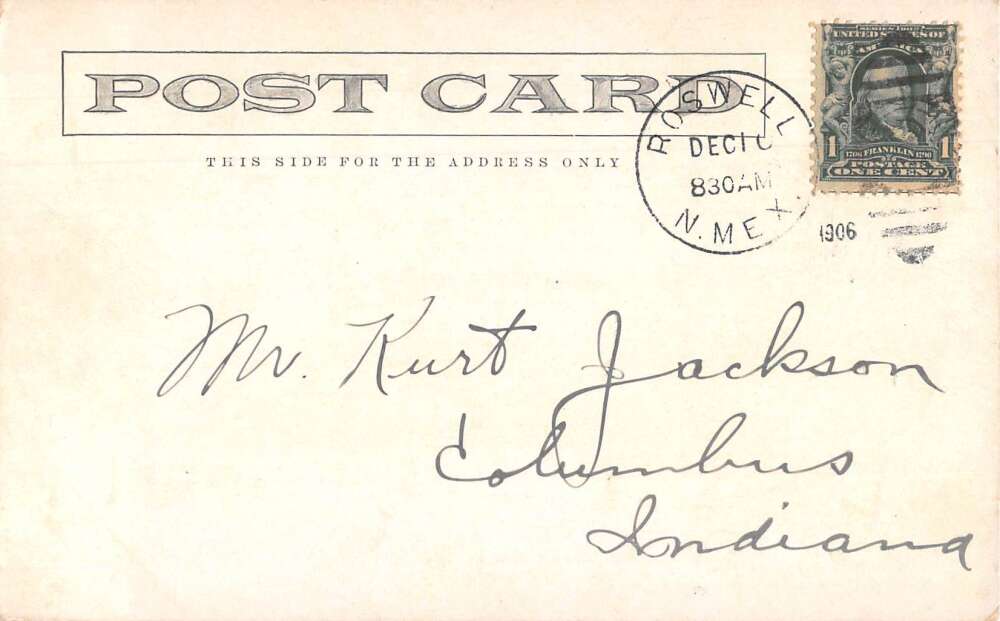 POST CARD
THIS SIDE FOR THE ADDRESS ONLY
ROSWELL
DEC 10
830AM
N. MEX.
1906
SERIES 1902
UNITED STATES OF
AMERICA
1 1706 FRANKLIN 1790 1
POSTAGE
ONE CENT
Mr. Kurt Jackson
Columbus
Indiana